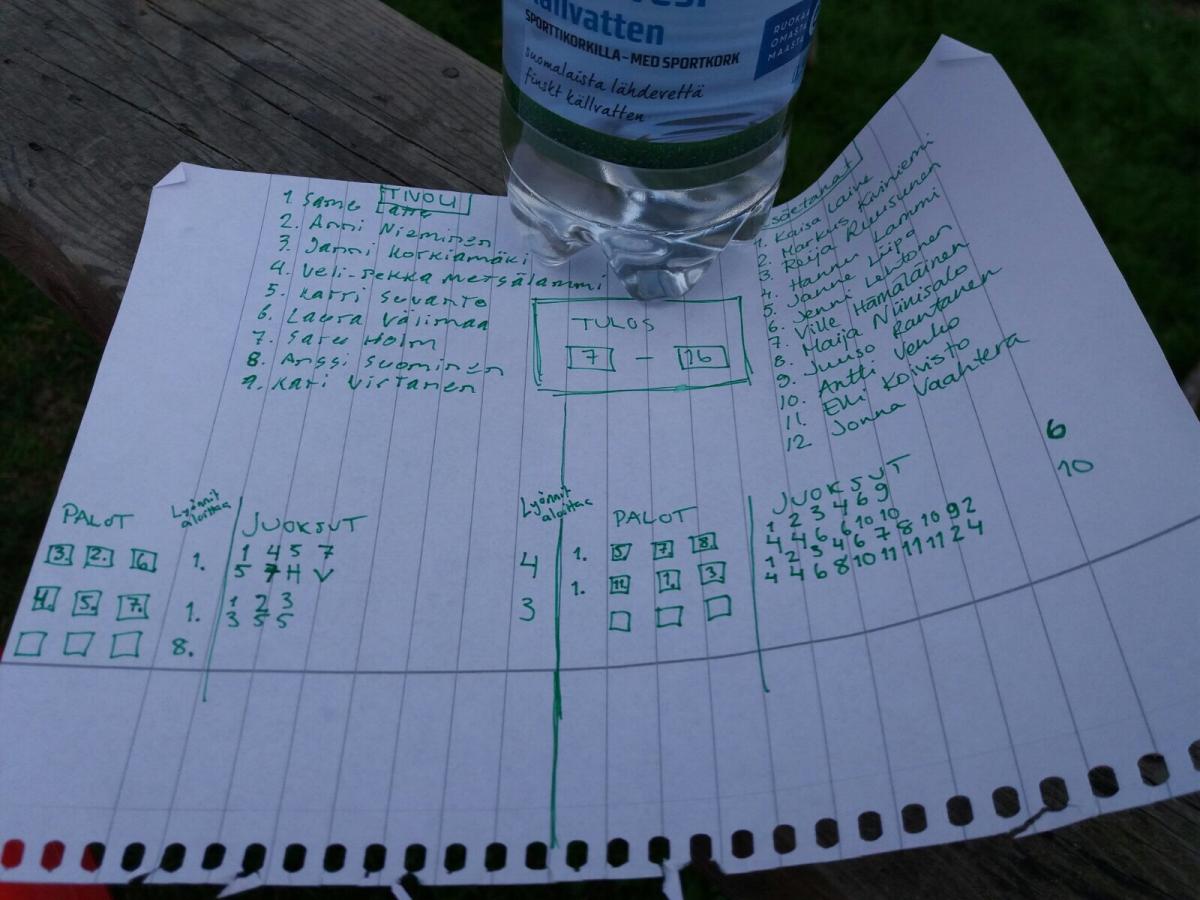 Källvatten
SPORTTIKORKILLA-MED SPORTKORK
suomalaista lähdevettä
finskt källvatten
RUOKAA
OMASTA
MAASTA
TIVOLI
1. Same
2. Anni Nieminen
3. Janni Korkiamäki
4. Veli-Pekka Metsälammi
5. Harri Suvanto
6. Laura Välimaa
7. Satu Holm
8. Anssi Suominen
9. Kari Virtanen
TULOS
7 - 16
1. Kaisa Laine
2. Markus Kiviniemi
3. Reija Ruusunen
4. Hannu Lammi
5. Janne Liipo
6. Jenni Lehtonen
7. Ville Hämäläinen
8. Maija Niinisalo
9. Juuso Rantanen
10. Antti Venho
11. Elli Koivisto
12. Jonna Vaahtera
PALOT
Lyönnit
aloittaa
JUOKSUT
3. 2. 6. 1.
1 4 5 7
5 7 H V
4
4. 5. 7. 1.
1 2 3
3 5 5
3
8.
Lyönnit
aloittaa
PALOT
JUOKSUT
1. 5 7. 8.
1 2 3 4 6 9
4 4 6 6 10 10
6
1. 11. 1. 3
1 2 3 4 6 7 8 10 9 2
4 4 6 8 10 11 11 11 2 4
10